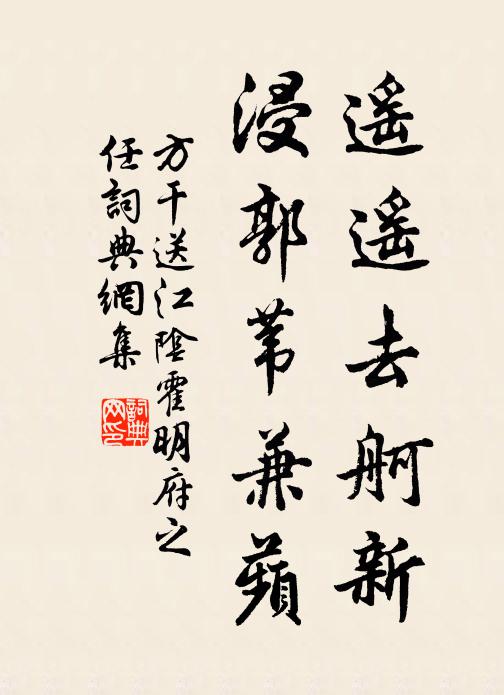 遥遥去舸新
浸郭苇兼蘋
方干送江陰霍明府之
任詞典網集
詞典
网印